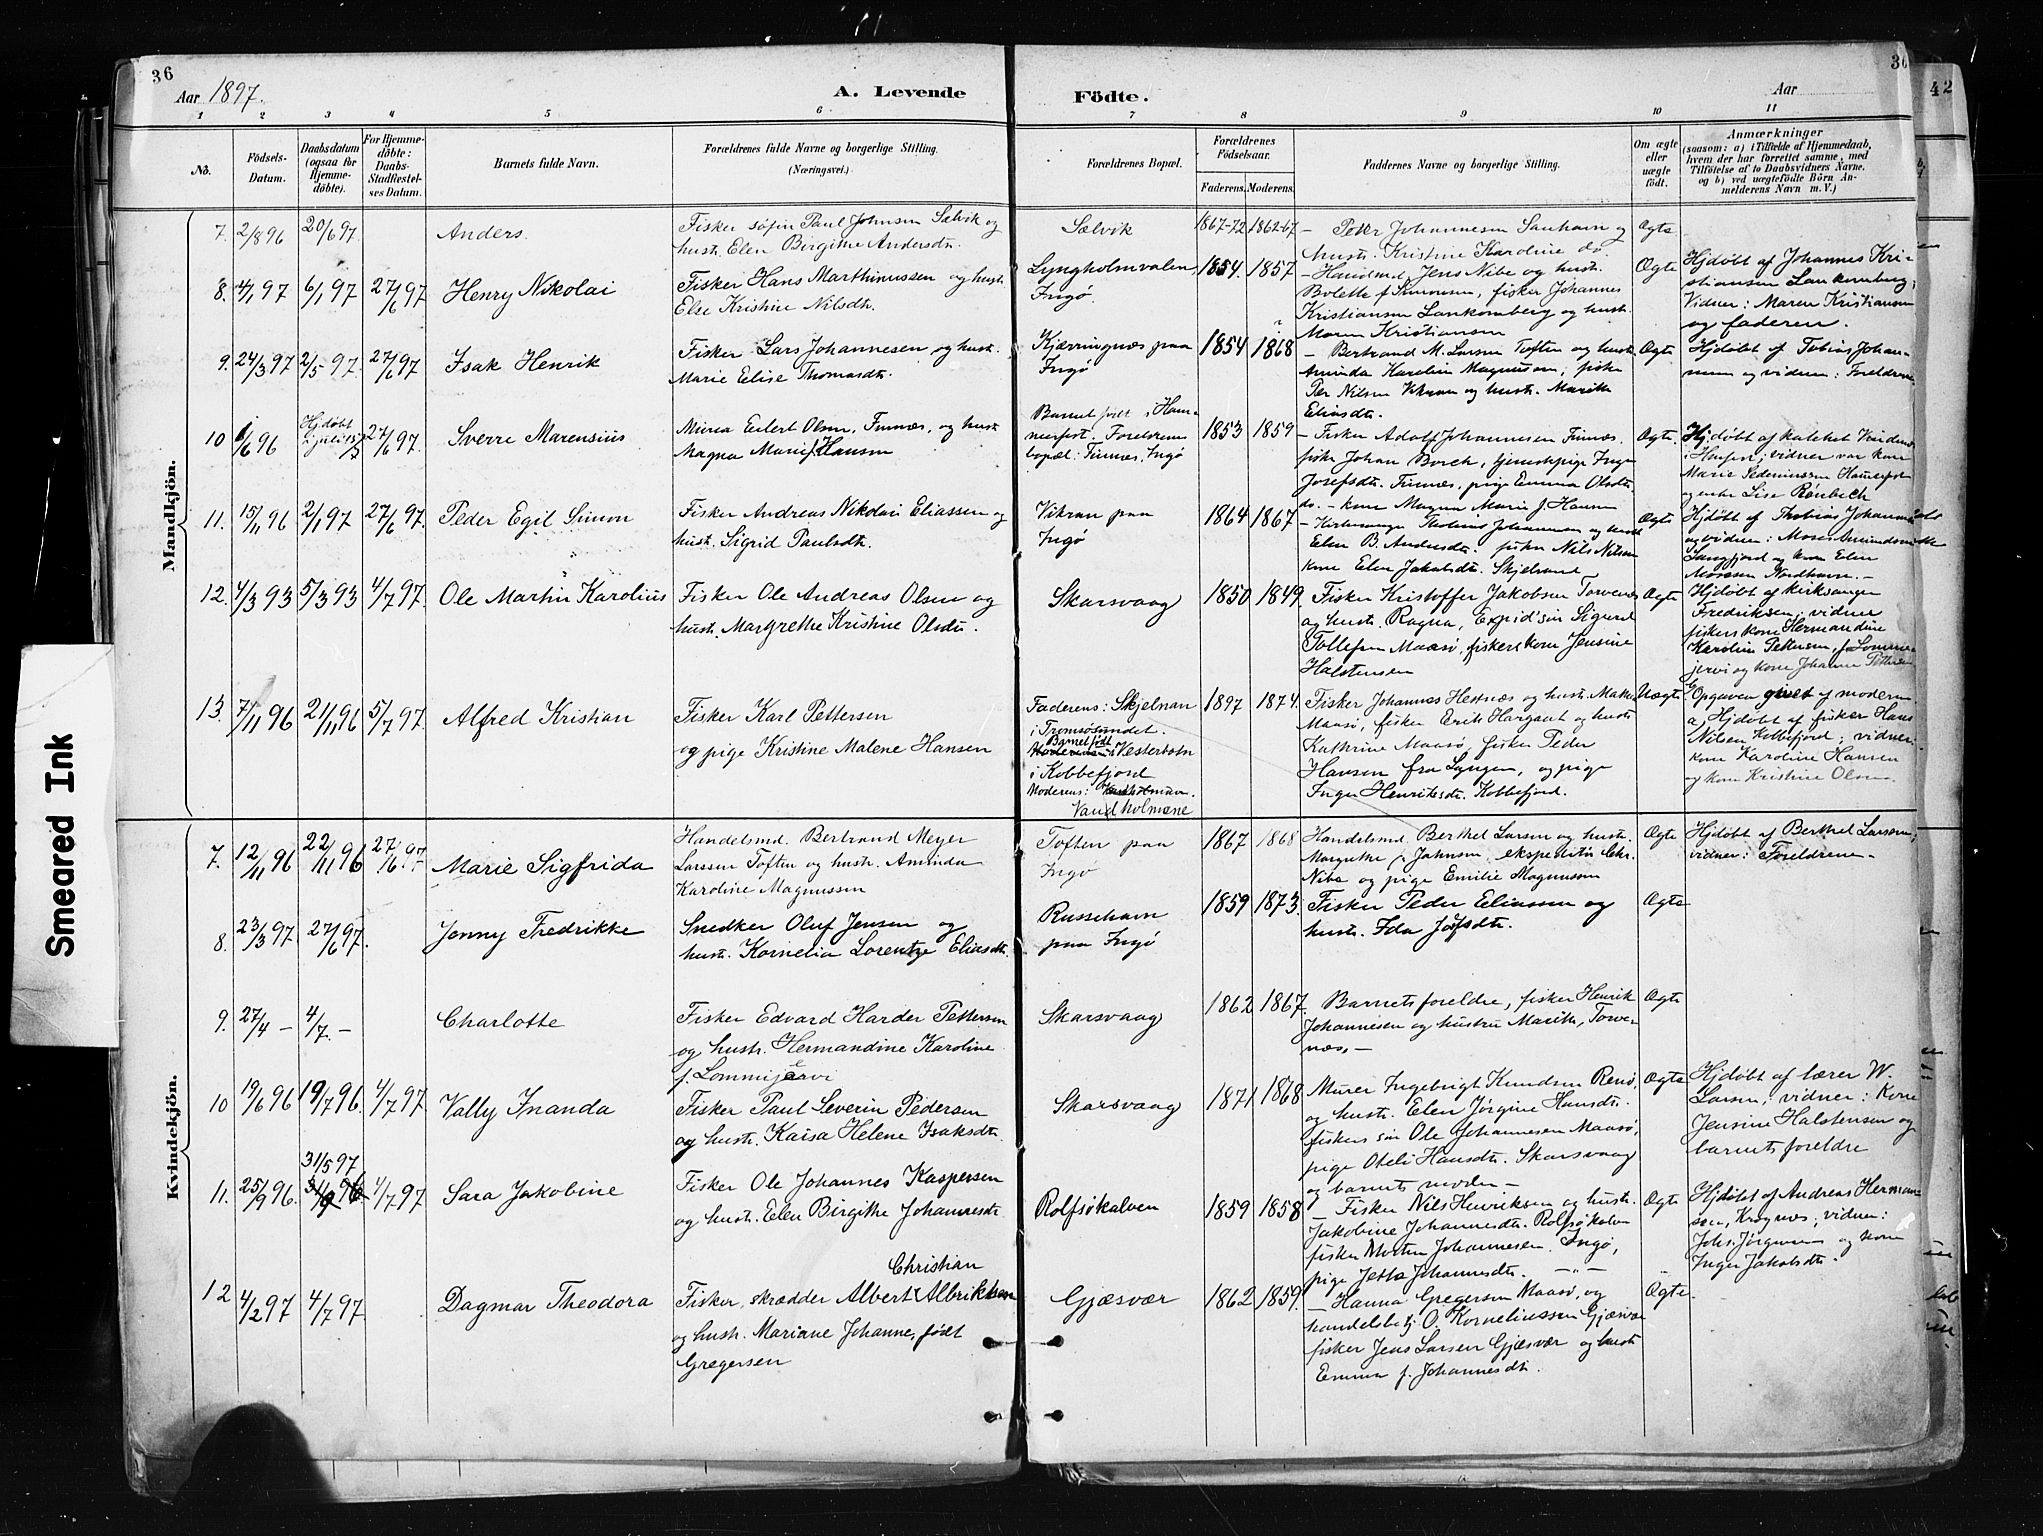 36
36
42
Aar 1897.
A. Levende
Födte.
Aar
1
2
3
4
5
6
7
8
9
10
11
No.
Födsels-
Datum.
Daabsdatum
(ogsaa for
Hjemme-
döbte).
For Hjemme-
döbte:
Daabs-
Stadfæstel-
ses Datum.
Barnets fulde Navn.
Forældrenes fulde Navne og borgerlige Stilling.
(Næringsvei.)
Forældrenes Bopæl.
Forældrenes
Födselsaar.
Faderens.
Moderens.
Faddernes Navne og borgerlige Stilling.
Om ægte
eller
uægte
födt.
Anmærkninger
(saasom: a) i Tilfælde af Hjemmedaab,
hvem der har forrettet samme, med
Tilföielse af to Daabsvidners Navne.
og b) ved uægtefödte Börn An-
melderens Navn m. V.)
Mandkjön.
7. 2/8 96 20/6 97 Anders.
Fisker søfin Paul Johnsen Sælvik og
hustr. Elen Birgitte Andersdtr.
Sælvik
1867-72 1862-67
– Peter Johannesen Sanhavn og
hustr. Kristine Karoline do.
Ægte
8. 4/1 97 6/1 97 27/6 97 Henry Nikolai
Fisker Hans Marthinussen og hustr.
Else Kristine Nilsdtr.
Lyngholmvalen,
Ingø.
1854. 1857
– Handelsmd. Jens Nibe og hustr.
Bolette f. Simonsen, fisker Johannes
Kristiansen Lankornberg og hustr.
Maren Kristiansen
Ægte
Hjdøbt af Johannes Kri-
stiansen Lankornberg;
Vidner: Maren Kristiansen
og faderen.
9. 24/3 97 2/5 97. 27/6 97 Isak Henrik
Fisker Lars Johannesen og hustr.
Marie Elise Thomasdtr.
Kjærringnæs paa
Ingø
1854 1868
– Bertrand M. Larsen Toften og hustr.
Aminda Karoline Magnussen, fisker
Per Nilsen Vikran og hustr. Marith
Eliasdtr.
Ægte
Hjdøbt af Tobias Johan-
nesen og vidner: Foreldrene
10 1/6 96 Hjdøbt i juli 15/7 27/6 97. Sverre Marensius
Murer Eilert Olsen, Finnæs, og hustr
Magna Marie J. Hansen
Barnet født i Ham-
merfest. Foreldrenes
bopæl: Finnæs, Ingø
1853 1859
– Fisker Adolf Johannesen Finnæs,
fisker Johan Borch, tjenestpige Inger
Josefsdtr. Finnæs, pige Emma Olsdtr.
do. – kone Magna Marie J. Hansen
Ægte.
Hjdøbt af kateket
i Hmfest; vidner var kone
Marie Hammerfest
og enke Lise Rønbeck
11. 15/11 96 2/1 97 27/6 97. Peder Egil Simon
Fisker Andreas Nikolai Eliassen og
hustr. Sigrid Paulsdtr.
Vikran paa
Ingø
1864 1867
– Kirkesanger Johannesen og hustr
Elen B. Andersdtr. fisker Nils Nilsen
kone Elen Jakobsdtr. Skjelsand
Ægte
Hjdøbt af Tobias Johannes
og vidner: Moses Amundsen
Sangfjord og kone Elen
Mosesen Nordhavn. –
12. 4/3 93 5/3 93 4/7 97. Ole Martin Karolius
Fisker Ole Andreas Olsen og
hustr. Margrethe Kristine Olsdtr.
Skarsvaag
1850 1849.
Fisker Kristoffer Jakobsen Torvenes
og hustr. Ragna, Expid'sin Sigurd
Tollefsen Maasø, fiskers kone Jensine
Halstensen
Ægte
Hjdøbt af kirkesanger
Fredriksen; vidner
fiskers kone Hermandine
Karoline Pettersen, f. Lomme-
jervi og kone Johanne Pettersen
13. 7/11 96 21/11 96 5/7 97. Alfred Kristian
Fisker Karl Pettersen
og pige Kristine Malene Hansen
Faderens: Skjelnan
i Tromsøsundet.
Barnet født
i Vesterbotn
i Kobbefjord
Moderens:
Vandholmene
1897 1874.
Fisker Johannes Hestnæs og hustr.
Maasø, fisker Erik Hargaat og hustr
Kathrine Maasø, fisker Peder
Hansen fra Lyngen, og pige
Inger Henriksdtr. Kobbefjord.
Uægte
Opgaven givet af moderen
a, Hjdøbt af fisker Hans
Nilsen Kobbefjord; vidner:
kone Karoline Hansen
og kone Kristine Olsen
Kvindekjön.
7. 12/11 96 22/11 96 27/6. 97. Marie Sigfrida
Handelsmd. Bertrand Meyer
Larssen Toften og hustr. Aminda
Karoline Magnussen
Toften paa
Ingø
1867 1868
Handelsmd. Berthel Larsen og hustr.
Margrethe f. Johnsen, ekspeditør Chr.
Nibe og pige Emilie Magnussen
Ægte
Hjdøbt af Berthel Larsen;
vidner: Foreldrene –
8. 23/3 97 27/6 97. Jenny Fredrikke
Snedker Oluf Jensen og
hustr. Kornelia Lorentze Eliasdtr
Russehavn
paa Ingø
1859 1873.
Fisker Peder Eliassen og
hustr. Ida Josfsdtr.
Ægte
9. 27/4 – 4/7. – Charlotte
Fisker Edvard Harder Pettersen
og hustr. Hermandine Karoline
f. Lommijærvi
Skarsvaag
1862 1867.
Barnets foreldre, fisker Henrik
Johannesen og hustru Marith, Torve-
næs, –
Ægte
10 19/6 96 19/7 96. 4/7 97. Vally Inanda
Fisker Paul Severin Pedersen
og hustr. Kaisa Helene Isaksdtr.
Skarsvaag
1871 1868
Murer Ingebrigt Knudsen Renø,
og hustr. Elen Jørgine Hansdtr.
fiskers søn Ole Johannesen Maasø,
pige Oteli Hansdtr. Skarsvaag
og barnets moder –
Ægte
Hjdøbt af lærer W.
Larsen; vidner: Kone
Jensine Halstensen og
barnets foreldre
11. 25/9 96. 31/5 97 4/7 97 Sara Jakobine
Fisker Ole Johannes Kaspersen
og hustr. Elen Birgitte Johannesdtr.
Rolfsøkalven
1859 1858
– Fisker Nils Henriksen og hustr.
Jakobine Johannesdtr. Rolfsøkalven
fisker Morten Johannesen. Ingø,
pige Jetta Johannesdtr. –"–
Ægte
Hjdøbt af Andreas Herman-
sen, Krognæs; vidner:
Johs. Jørgensen og kone
Inger Jakobsdtr.
12 4/2 97 4/7 97 Dagmar Theodora
Christian
Fisker, skrædder Albert Albriktsen
og hustr. Mariane Johanne, født
Gregersen
Gjæsvær
1862 1859.
– Hanna Gregersen Maasø, og
handelsbetj. O. Korneliussen Gjæsvær
fisker Jens Larsen Gjæsvær og hustr
Emma f. Johannesdtr.
Ægte.
Smeared Ink